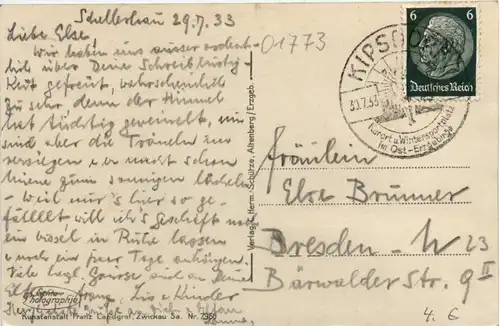 Schellerhau 29.7.33
Liebe Else,
Wir haben uns ausser ordent-
lich über Deine Schreiblustig-
keit gefreut, wahrscheinlich
zu sehr, denn der Himmel
hat tüchtig geweint, nun
sind aber die Tränen am
versiegen u er macht schon
Miene zum sonnigen lächeln
- weil mir's hier so ge-
fällt, will ich's Geschäft noch
ein bissel in Ruhe lassen
u noch ein paar Tage anhängen.
Viele herzl. Grüsse auch an Deine
Eltern Franz, u Kinder
01773
KIPSDORF
30.7.33
Kurort u. Wintersportplatz
im Ost-Erzgebirge
6 6
Deutsches Reich
Fräulein
Else Brunner
Dresden - N 23
Bärwalder Str. 9 II
4. €
Verlag v. Herm. Schütze, Altenberg/Erzgeb.
Echte
Photographie
Kunstanstalt Franz Landgraf, Zwickau Sa. Nr. 7356